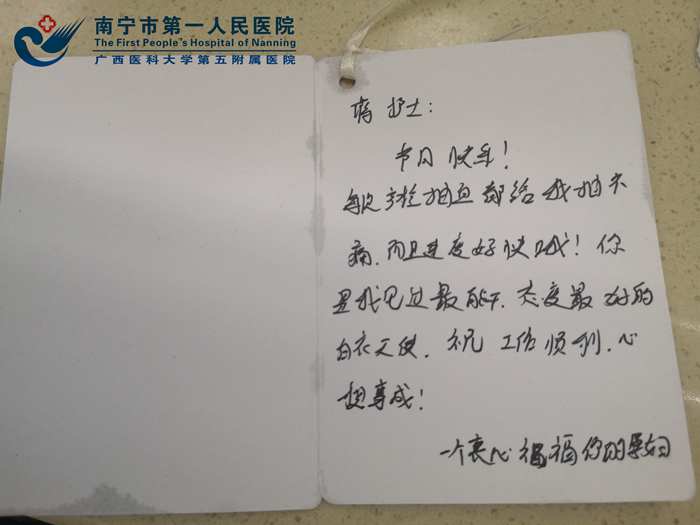 南宁市第一人民医院
The First People's Hospital of Nanning
广西医科大学第五附属医院
护士:
节日快乐!
每次产检抽血都给我抽不
痛,而且速度好快哦!你
是我见过最能干,态度最好的
白衣天使,祝 工作顺利,心
想事成!
一个衷心祝福你的孕妇